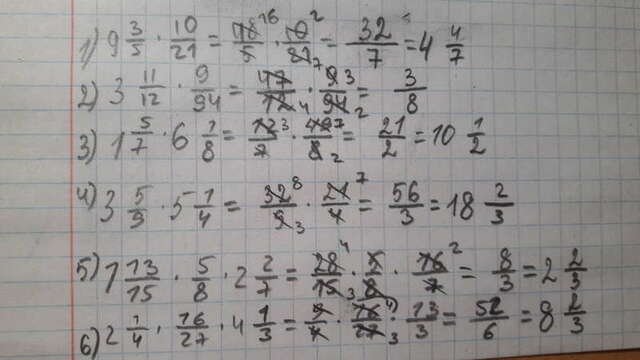 1) 9 3/5 · 10/21 = 48/5 · 10/21 = 32/7 = 4 4/7
2) 3 11/12 · 9/94 = 47/12 · 9/94 = 3/8
3) 1 5/7 · 6 1/8 = 12/7 · 49/8 = 21/2 = 10 1/2
4) 3 5/9 · 5 1/4 = 32/9 · 21/4 = 56/3 = 18 2/3
5) 1 13/15 · 5/8 · 2 2/7 = 28/15 · 5/8 · 16/7 = 8/3 = 2 2/3
6) 2 1/4 · 16/27 · 4 1/3 = 9/4 · 16/27 · 13/3 = 52/6 = 8 2/3